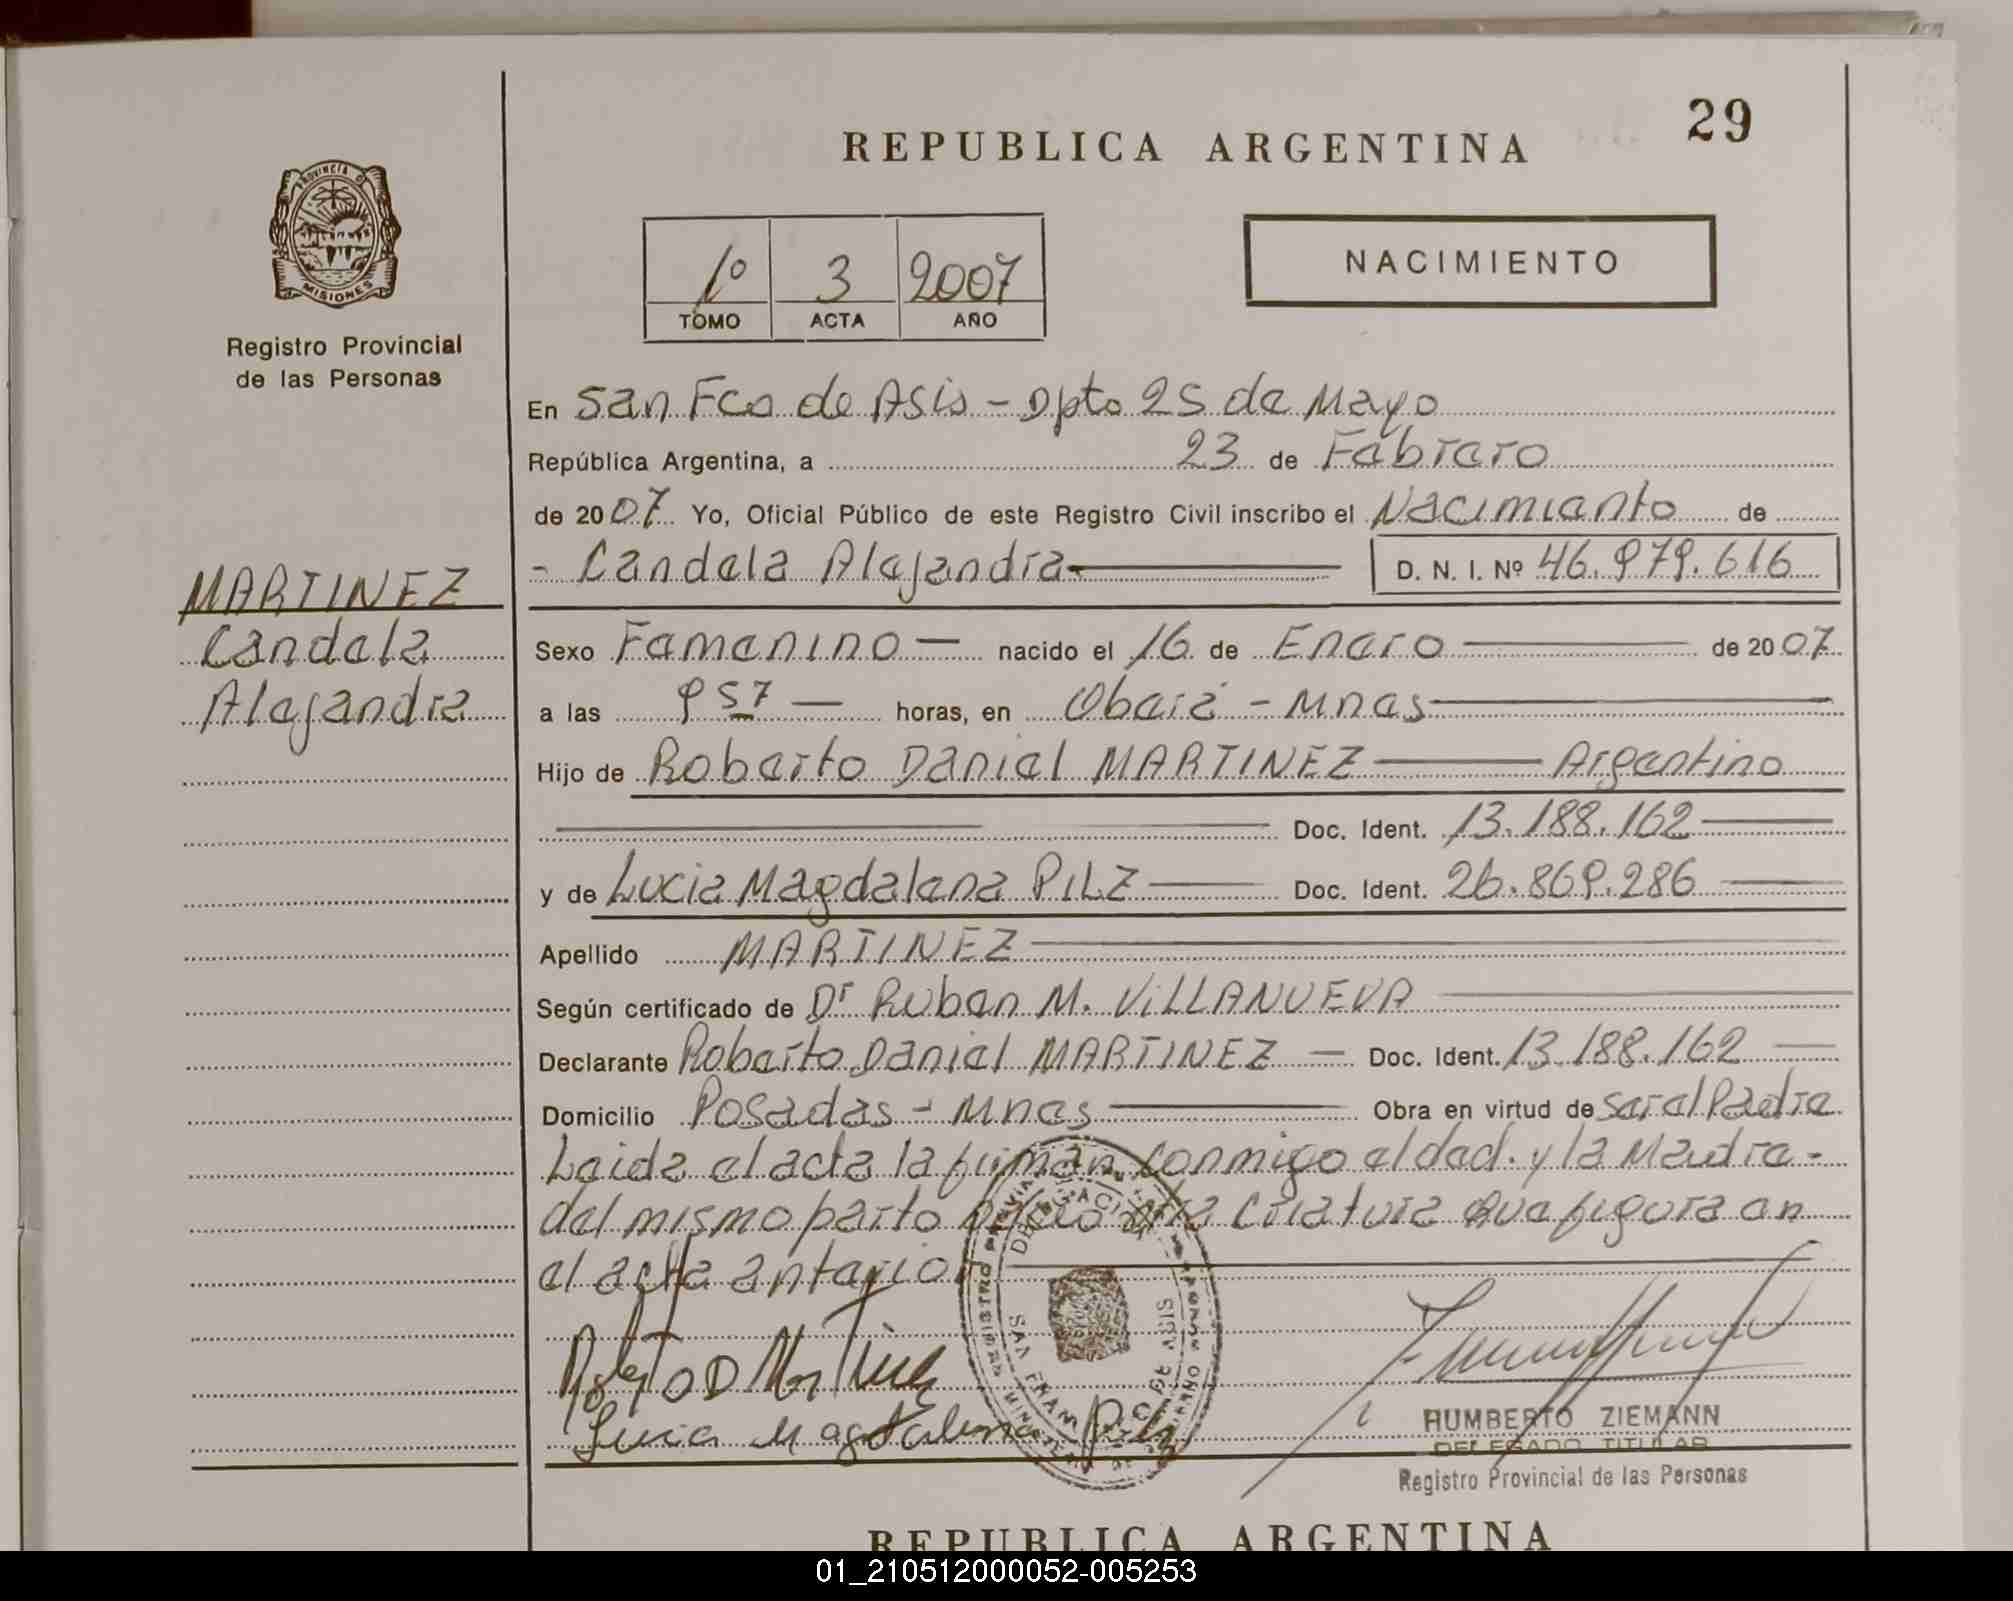 29
REPUBLICA ARGENTINA
PROVINCIA DE
MISIONES
Registro Provincial
de las Personas
1º 3 2007
TOMO ACTA AÑO
NACIMIENTO
En San Fco de Asis - Dpto 25 de Mayo
República Argentina, a 23 de Febrero
de 2007 Yo, Oficial Público de este Registro Civil inscribo el Nacimiento de
- Candela Alejandra
D. N. I. Nº 46.979.616
MARTINEZ
Candela
Alejandra
Sexo Femenino — nacido el 16 de Enero de 2007
a las 9 57 — horas, en Oberá - Mnes
Hijo de Roberto Daniel MARTINEZ — Argentino
Doc. Ident. 13.188.162
y de Lucia Magdalena PILZ — Doc. Ident. 26.869.286
Apellido MARTINEZ
Según certificado de Dr Ruben M. VILLANUEVA
Declarante Roberto Daniel MARTINEZ — Doc. Ident. 13.188.162
Domicilio Posadas - Mnes — Obra en virtud de ser el Padre
Leida el acta la firman conmigo el decl. y la Madre -
del mismo parto nació otra criatura que figura en
el acta anterior
Roberto D Martinez
Lucia Magdalena Pilz
DELEGACION
SAN FRANCISCO DE ASIS
HUMBERTO ZIEMANN
DELEGADO TITULAR
Registro Provincial de las Personas
REPUBLICA ARGENTINA
01_210512000052-005253